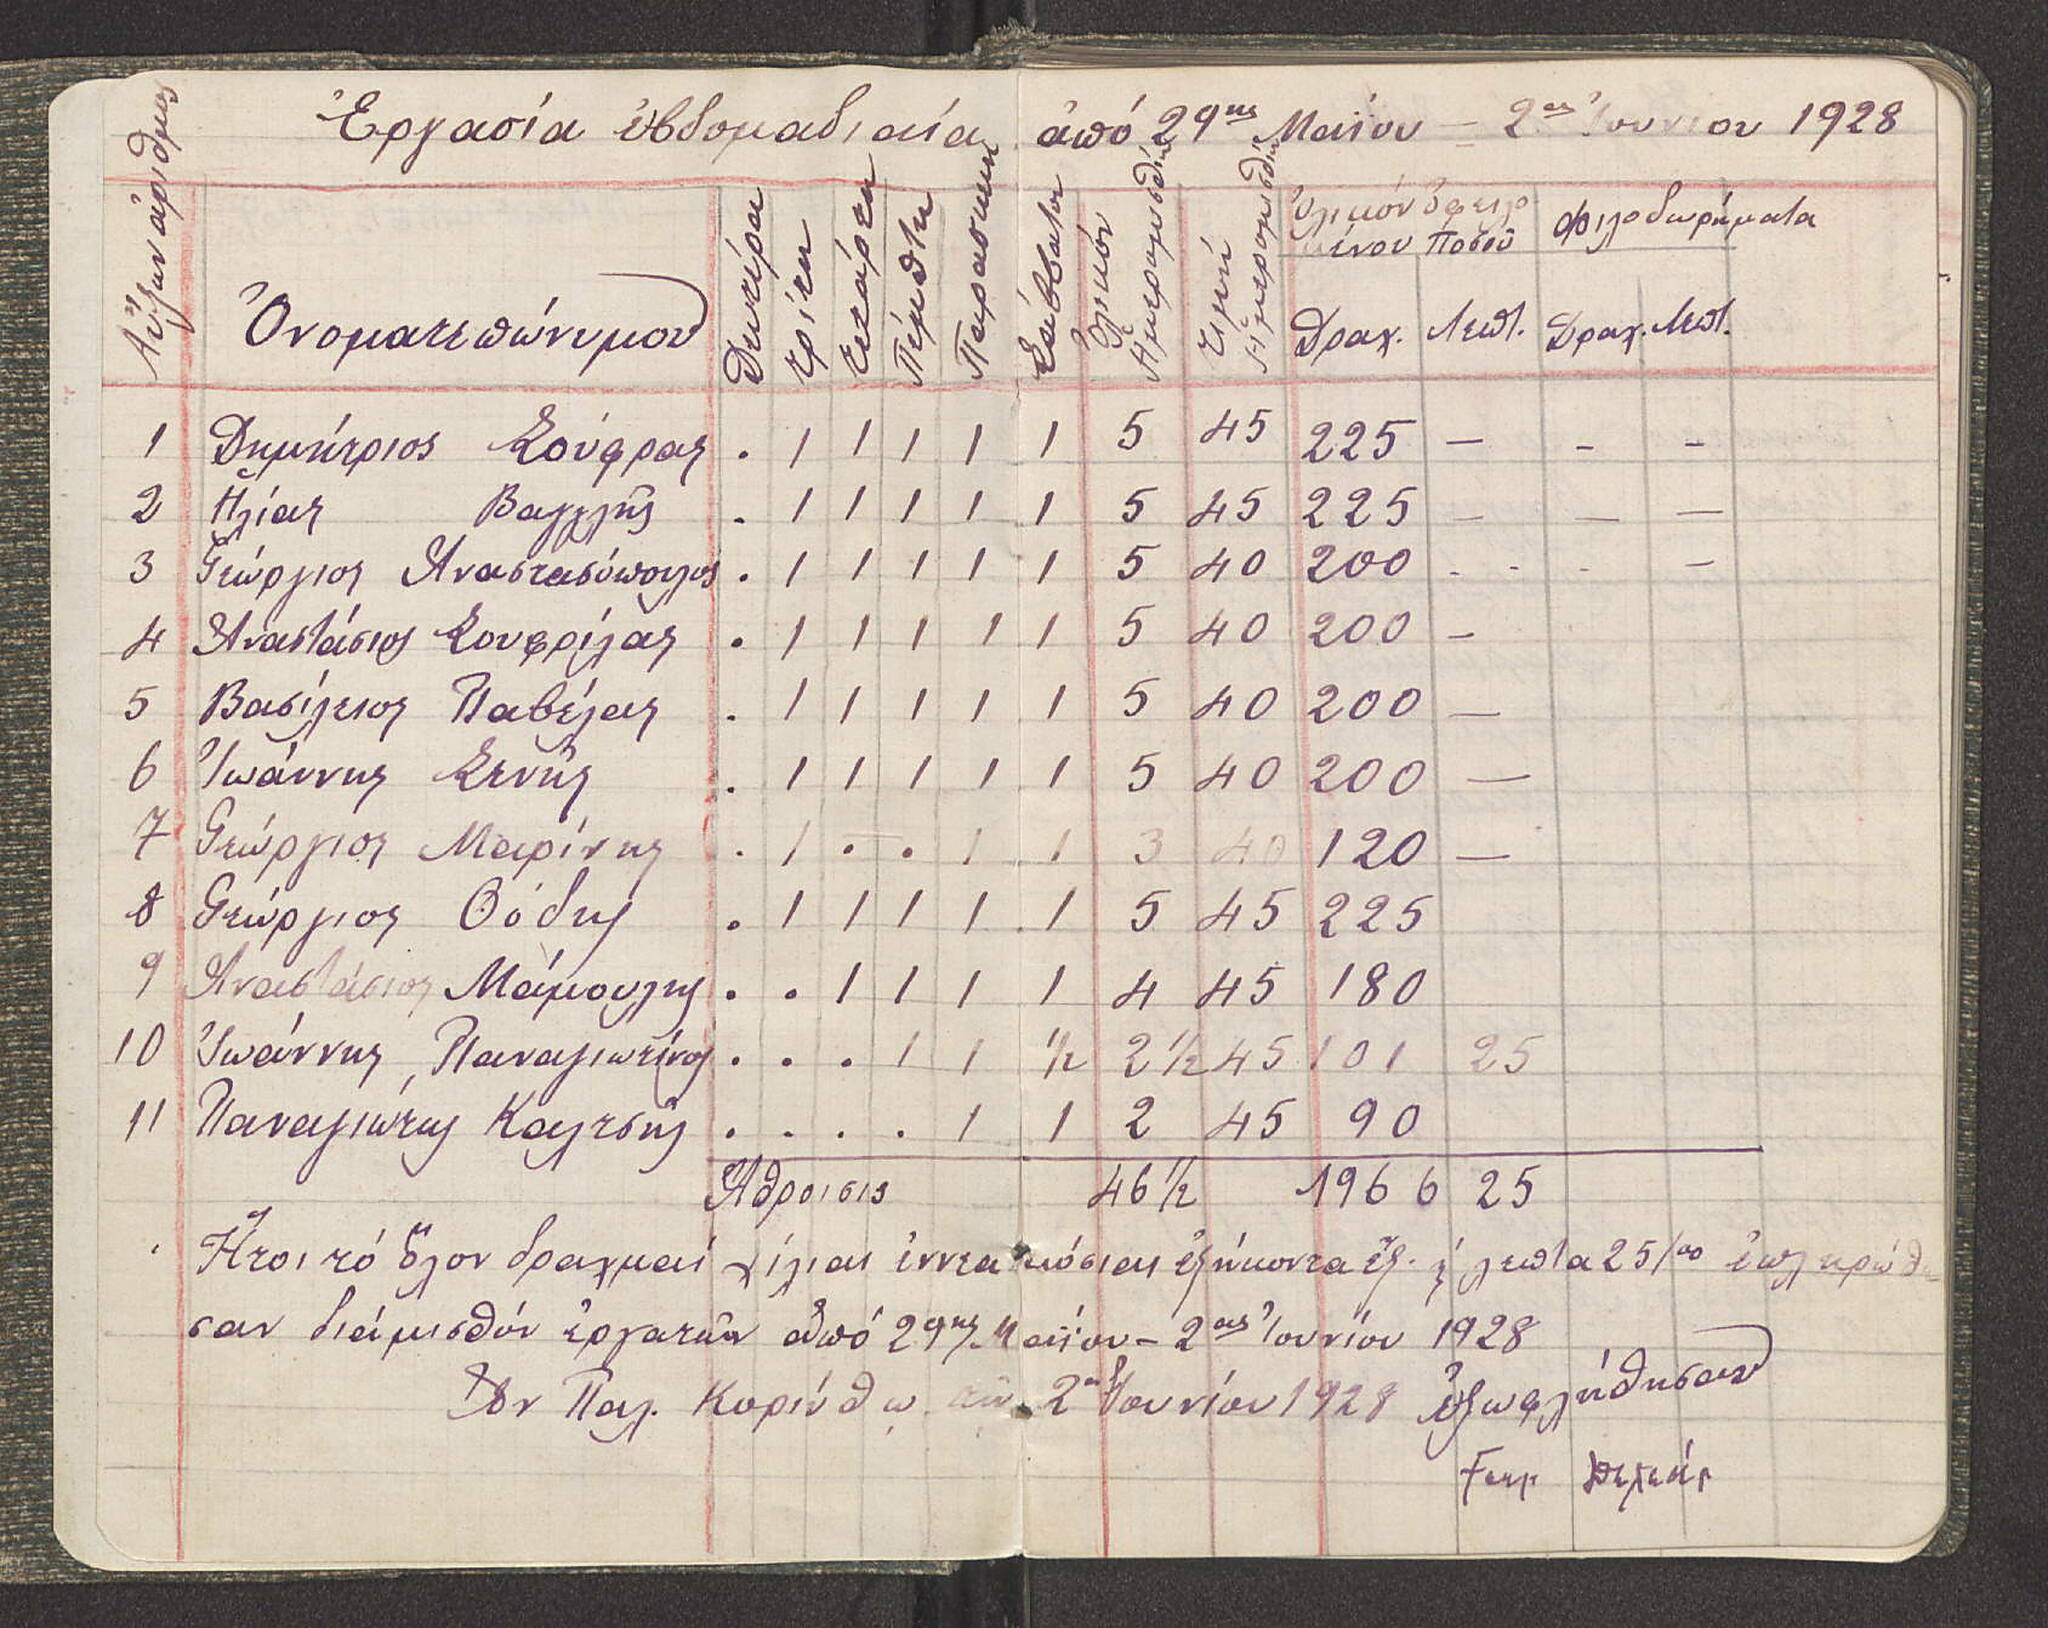 Ἐργασία ἑβδομαδιαία ἀπό 29ης Μαΐου – 2ας Ἰουνίου 1928
Αὔξων ἀριθμός Ὀνοματεπώνυμον Δευτέρα τρίτη τετάρτη Πέμπτη Παρασκευή Σάββατον Ὁλικόν Ἡμερομισθίων τιμή Ἡμερομισθίου Ὁλικόν ὀφειλομένου Ποσοῦ Φιλοδωρήματα
Δραχ. Λεπτ. Δραχ. Λεπτ.
1 Δημήτριος Σούφρας . 1 1 1 1 1 5 45 225 — - -
2 Ηλίας Βαγγελῆς . 1 1 1 1 1 5 45 225 — — —
3 Γεώργιος Ἀναστασόπουλος . 1 1 1 1 1 5 40 200 - - - —
4 Ἀναστάσιος Σουφρίλας . 1 1 1 1 1 5 40 200 —
5 Βασίλειος Παβέλας . 1 1 1 1 1 5 40 200 —
6 Ἰωάννης Σενῆς . 1 1 1 1 1 5 40 200 —
7 Γεώργιος Μαρίνης . 1 . . 1 1 3 40 120 —
8 Γεώργιος Θόδης . 1 1 1 1 1 5 45 225
9 Ἀναστάσιος Μάμουλης . . 1 1 1 1 4 45 180
10 Ἰωάννης Παναγιωτίνος . . . 1 1 ½ 2 ½ 45 101 25
11 Παναγιώτης Καλτσῆς . . . . 1 1 2 45 90
Ἄθροισις 46 ½ 1966 25
Ἤτοι τό ὅλον δραχμαί χίλιαι ἐννεακόσιαι ἑξήκοντα ἕξ. καί λεπτα 25/00 ἐπληρώθη
σαν διά μισθόν ἐργατῶν ἀπό 29ης Μαΐου – 2ας Ἰουνίου 1928
Ἐν Παλ. Κορίνθῳ τῇ 2ᾳ Ἰουνίου 1928 ἐξωφλήθησαν